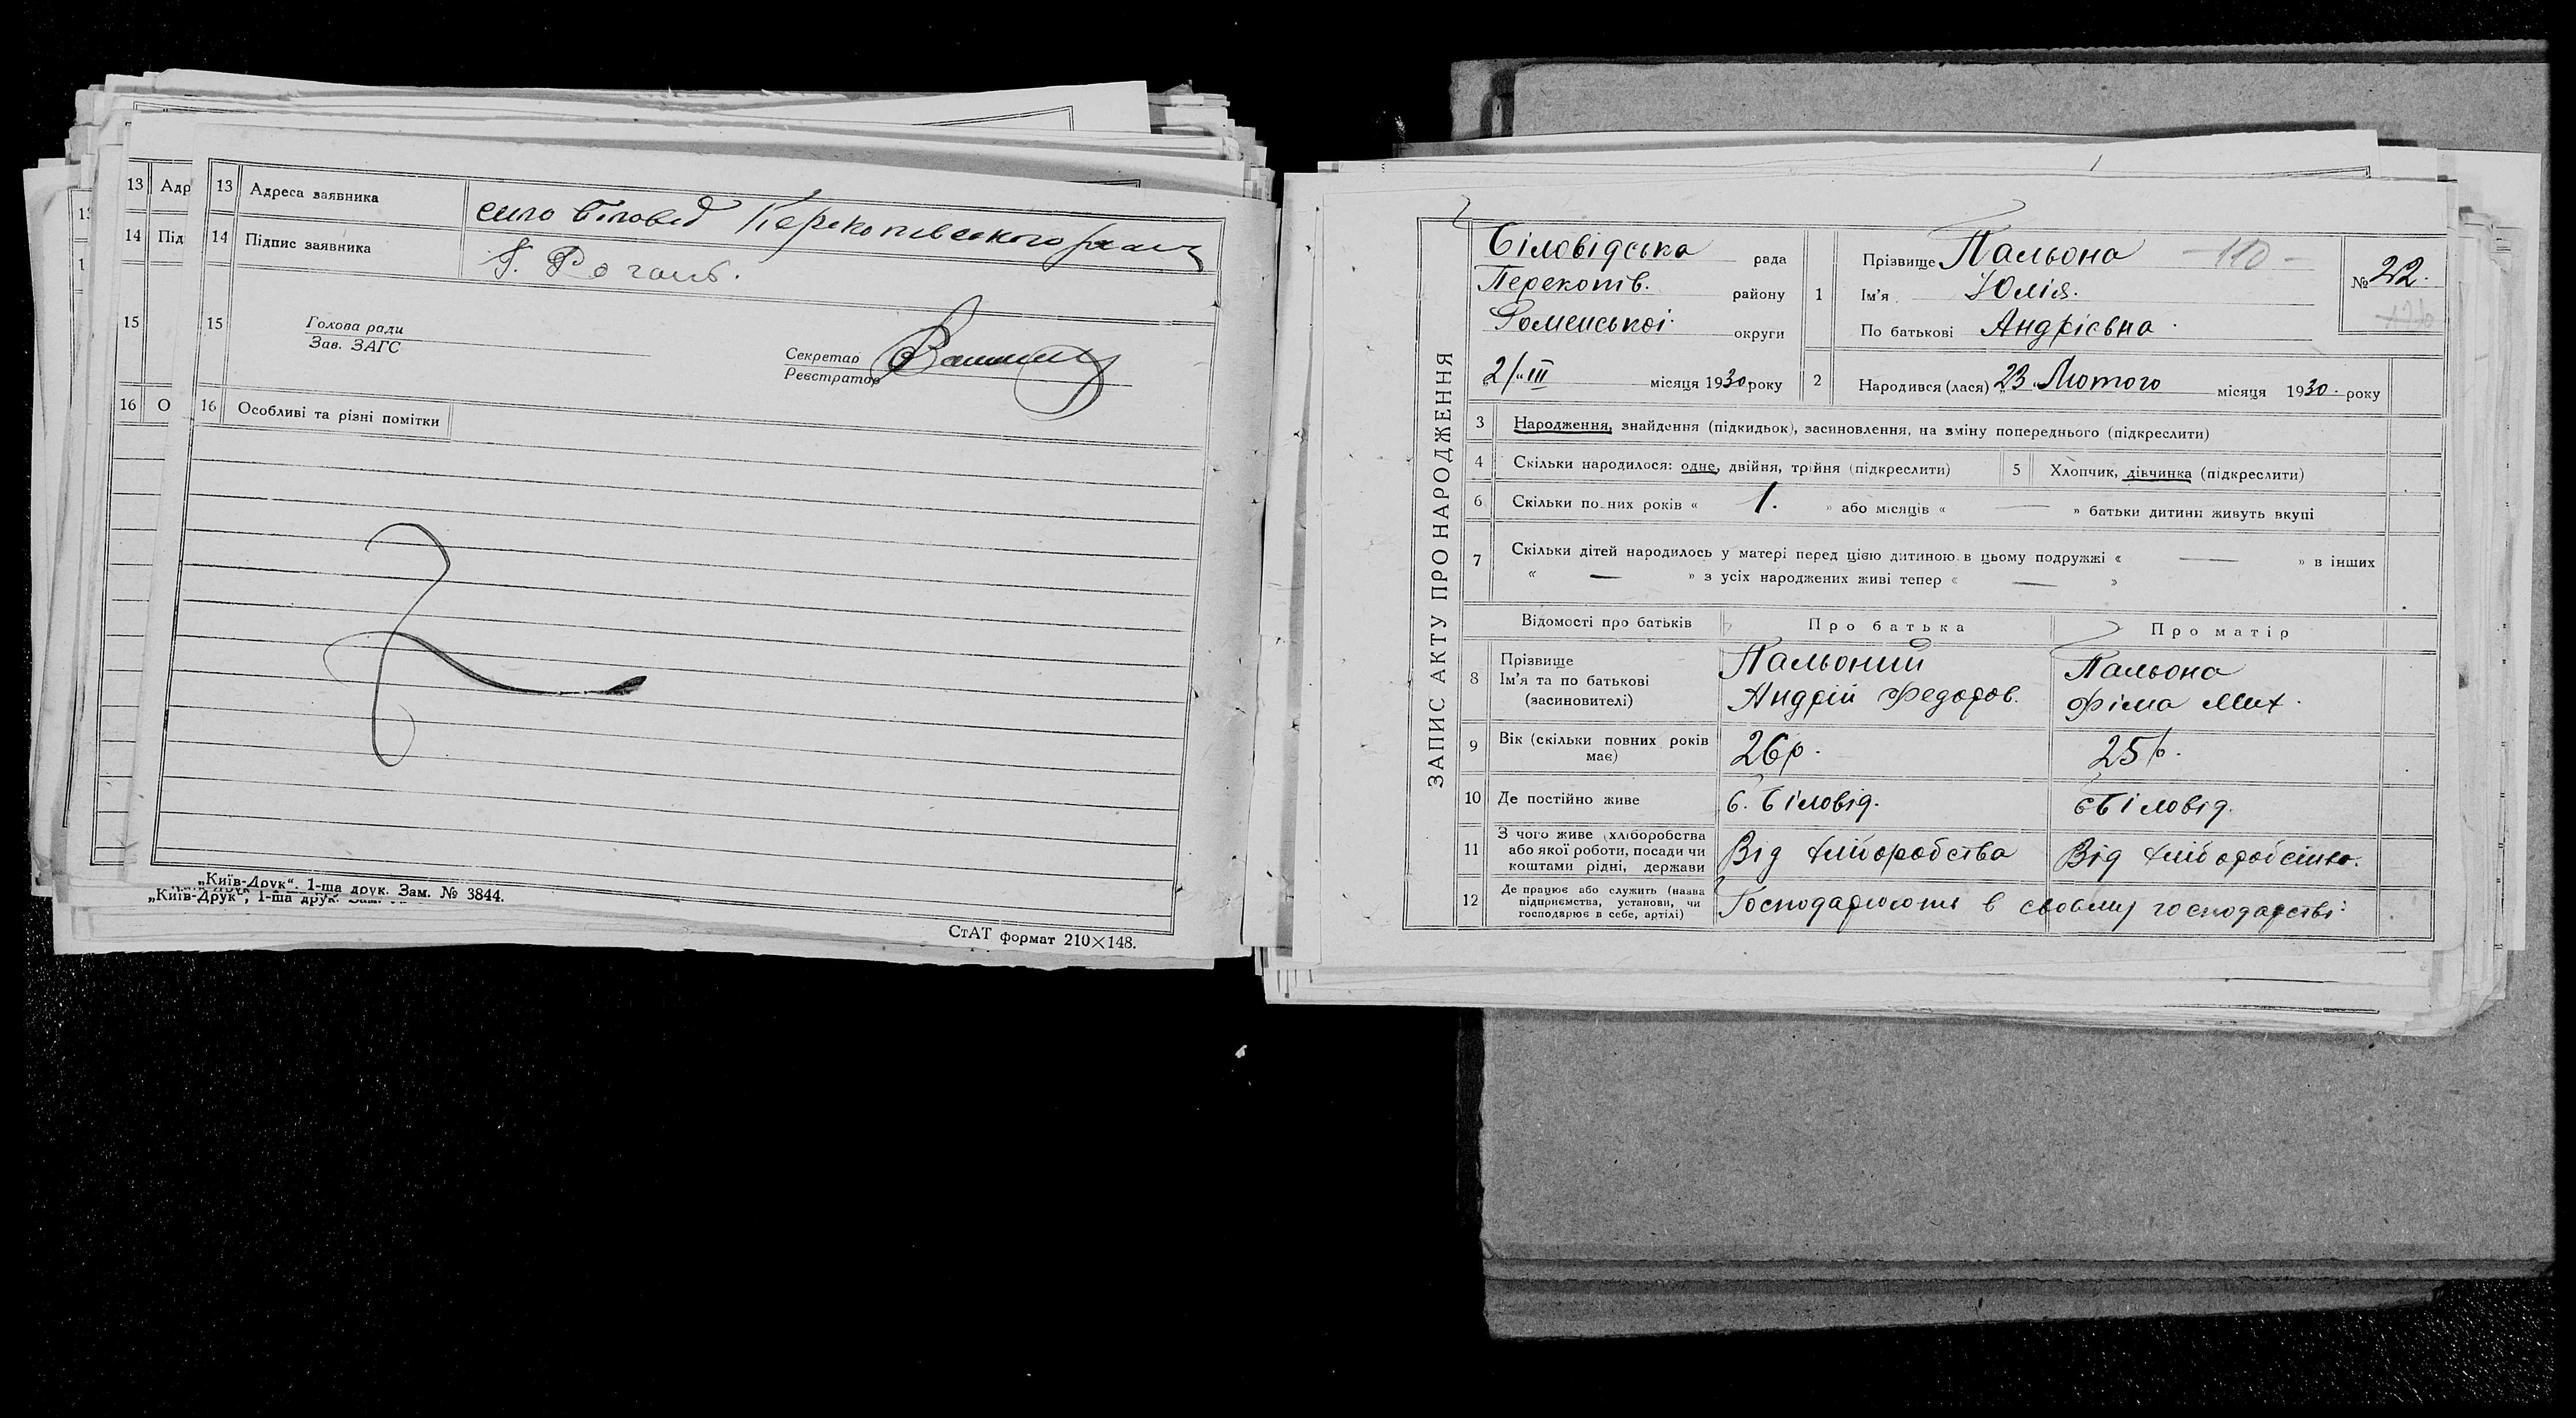 13 Адр
14 Під
15
16 О
13 Адреса заявника село Біловод Перекопівського району
14 Підпис заявника Г. Рогаль.
15 Голова ради
Зав. ЗАГС
Секретар
Реєстратор
16 Особливі та різні помітки
„Київ-Друк“. 1-ша друк. Зам. № 3844.
„Київ-Друк“, 1-ша друк.
СтАТ формат 210×148.
ЗАПИС АКТУ ПРО НАРОДЖЕННЯ
Біловідська рада
Перекопів. району
Роменської округи
„2/„ III місяця 1930 року
1 Прізвище Пальона - 110 -
Ім'я Юлія.
По батькові Андрієвна.
№ 22.
2 Народився (лася) „23„ Лютого місяця 1930. року
3 Народження, знайдення (підкидьок), засиновлення, на зміну попереднього (підкреслити)
4 Скільки народилося: одне, двійня, трійня (підкреслити) 5 Хлопчик, дівчинка (підкреслити)
6 Скільки повних років « 1. » або місяців « — » батьки дитини живуть вкупі
7 Скільки дітей народилось у матері перед цією дитиною в цьому подружжі « — » в інших
« — » з усіх народжених живі тепер « — »
Відомості про батьків Про батька Про матір
8 Прізвище
Ім'я та по батькові
(засиновителі)
Пальоний
Андрій Федоров.
Пальона
Фіма Мих.
9 Вік (скільки повних років
має)
26 р. 25 р.
10 Де постійно живе с. Біловід. с Біловід.
11 З чого живе (хліборобства
або якої роботи, посади чи
коштами рідні, держави
Від хліборобства Від хліборобства.
12 Де працює або служить (назва
підприємства, установи, чи
господарює в себе, артілі)
Господарюють в своєму господарстві.